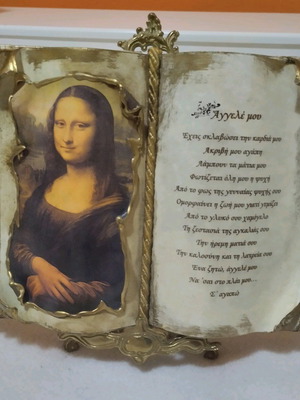 Άγγελέ μου
Έχεις σκλαβώσει την καρδιά μου
Ακριβή μου αγάπη
Λάμπουν τα μάτια μου
Φωτίζεται όλη μου η ψυχή
Από το φως της γενναίας ψυχής σου
Ομορφαίνει η ζωή μου γιατί γεμίζει
Από το γλυκό σου χαμόγελο
Τη ζεστασιά της αγκαλιάς σου
Την ήρεμη ματιά σου
Την καλοσύνη και τη λατρεία σου
Ένα ζητώ, άγγελέ μου
Να 'σαι στο πλάι μου...
Σ' αγαπώ